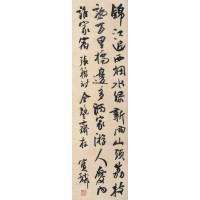 錦江近西烟水綠新雨山頭荔枝
熟萬里橋邊多酒家游人愛向
誰家宿 張籍詩